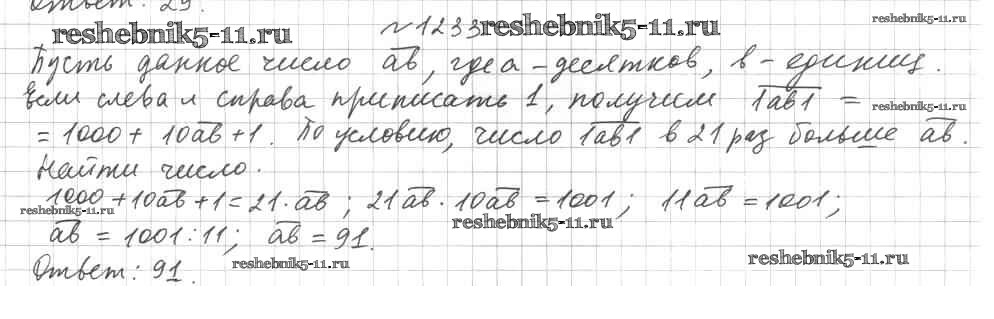 Ответ: 29.
reshebnik5-11.ru №1233 reshebnik5-11.ru reshebnik5-11.ru
Пусть данное число ab, где a - десятков, в - единиц.
Если слева и справа приписать 1, получим 1ab1 = reshebnik5-11.ru
= 1000 + 10ab + 1. По условию, число 1ab1 в 21 раз больше ab.
Найти число.
1000 + 10ab + 1 = 21 · ab ; 21ab · 10ab = 1001 ; 11ab = 1001 ;
reshebnik5-11.ru reshebnik5-11.ru
ab = 1001 : 11 ; ab = 91.
Ответ: 91. reshebnik5-11.ru reshebnik5-11.ru